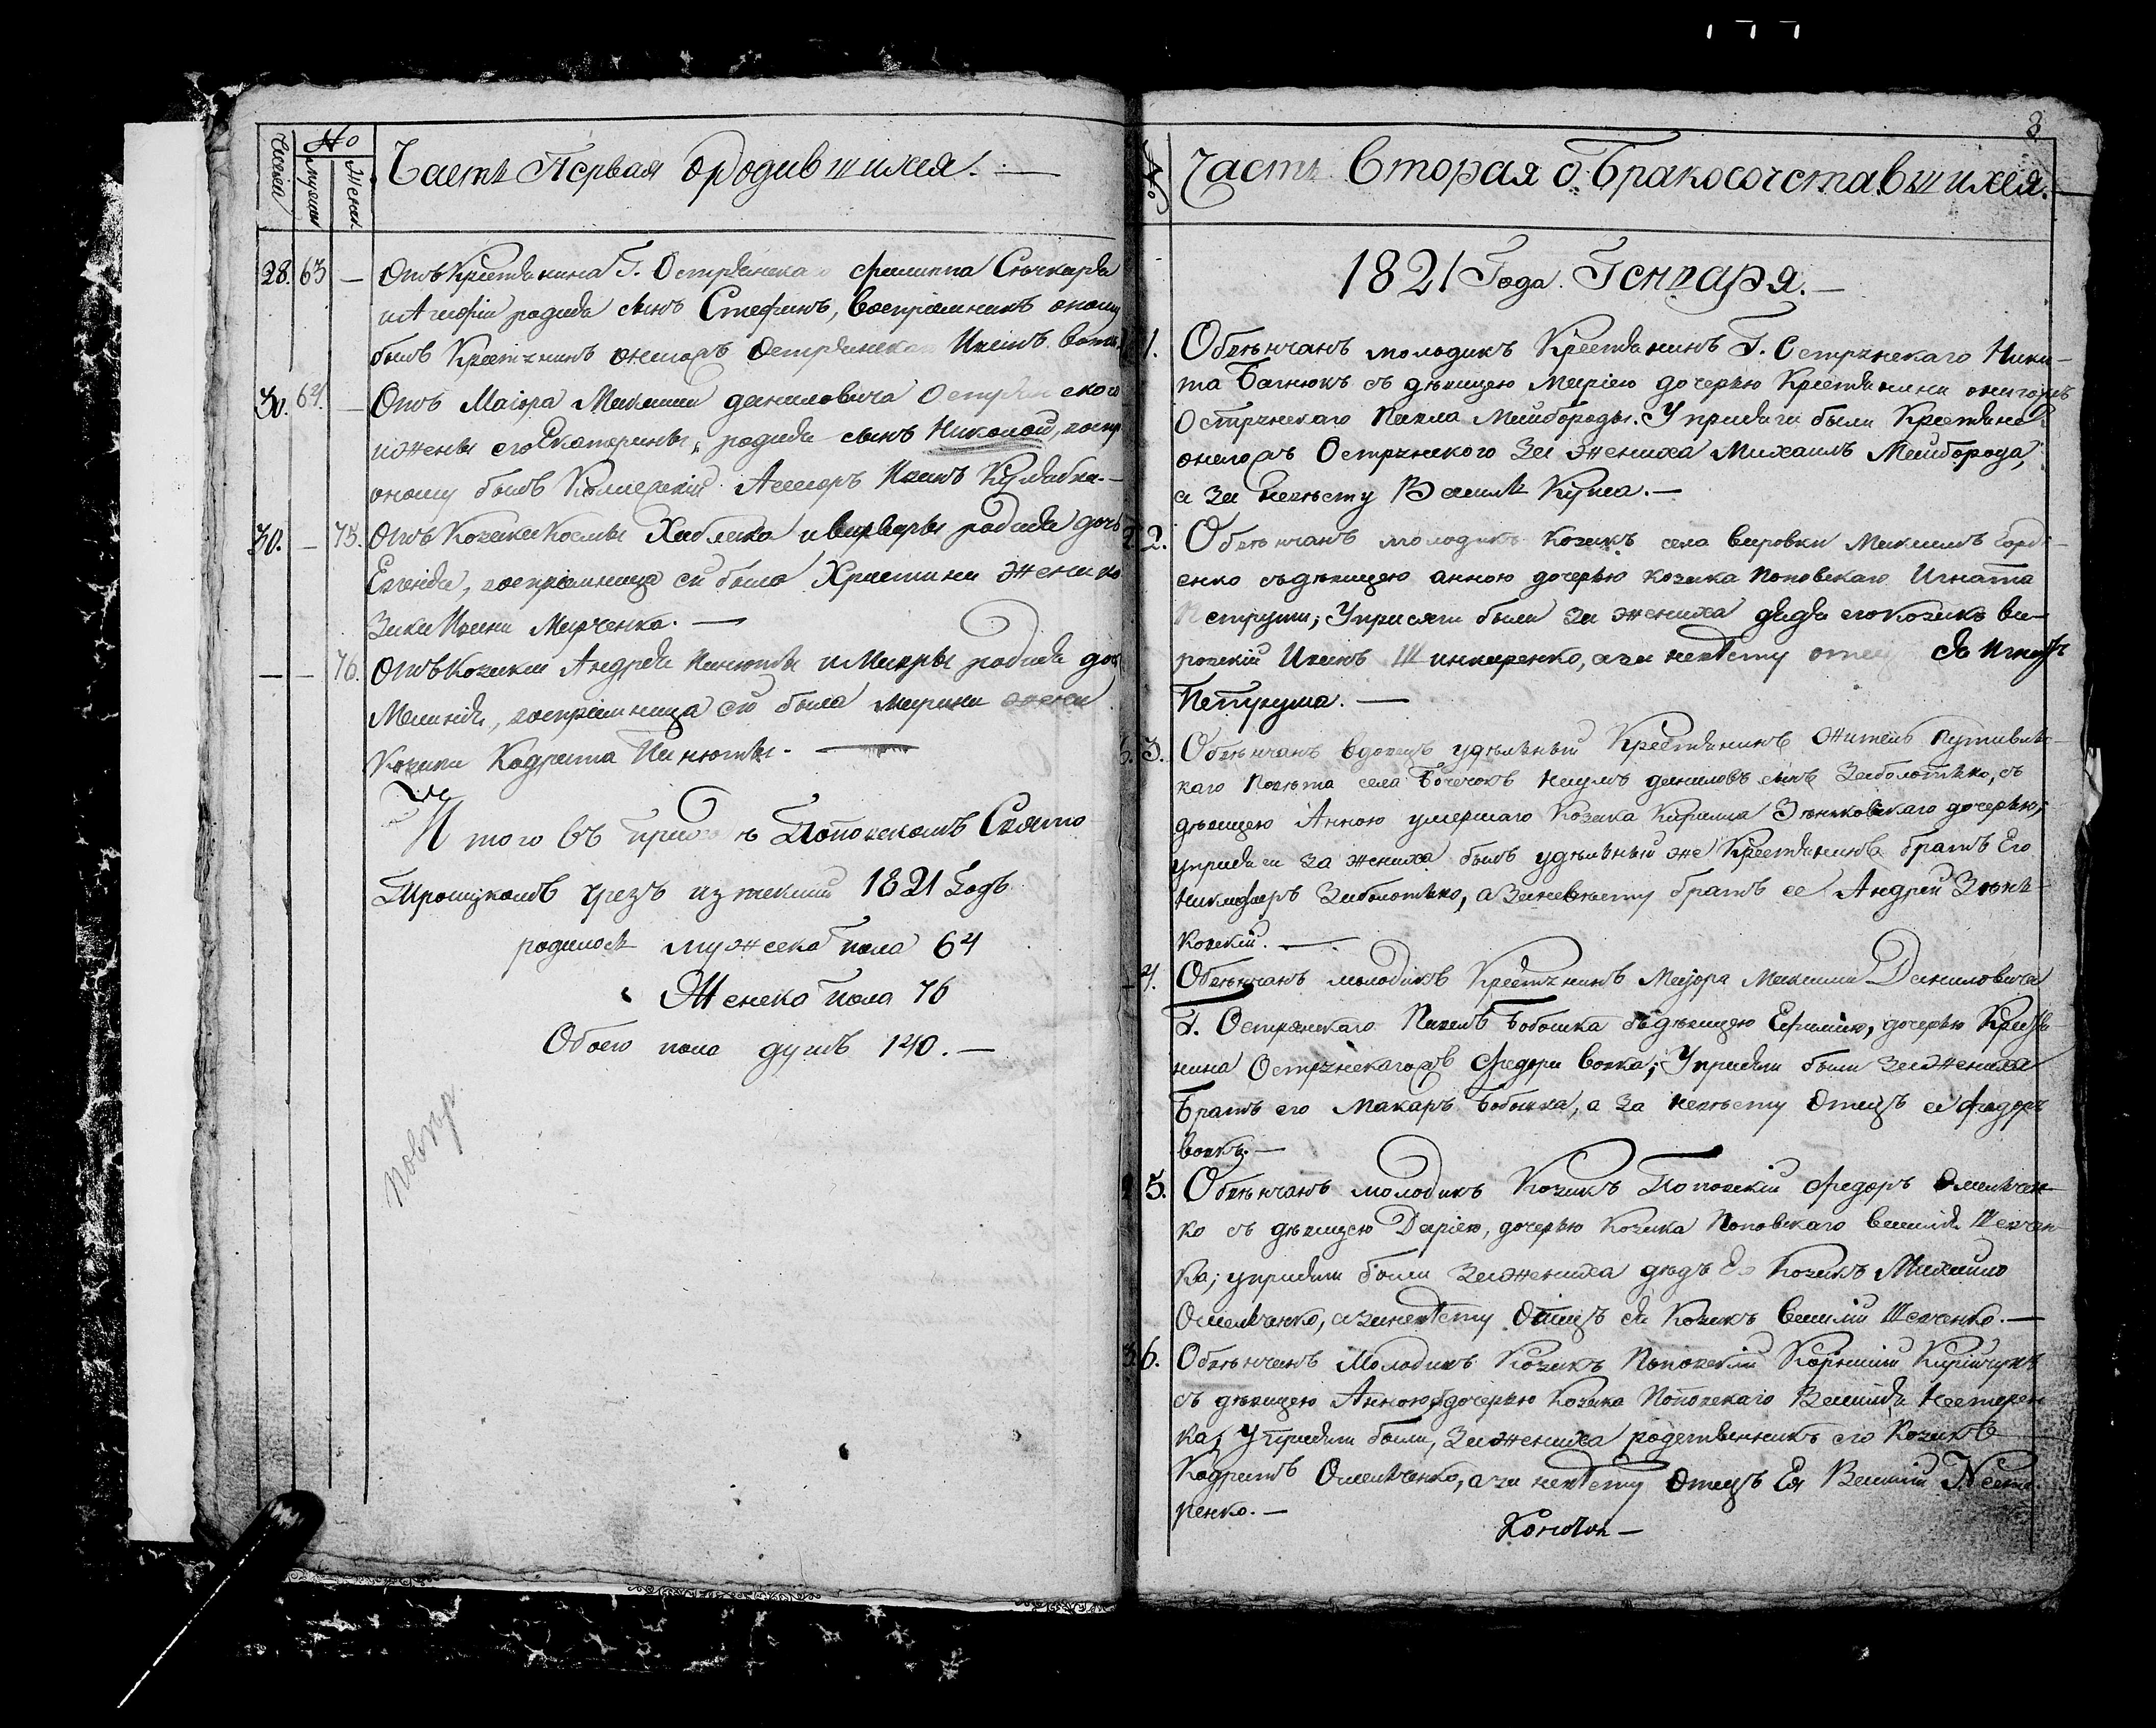 Числа
№
мужеск
женск
Часть Первая о родившихся.
28. 63 — Отъ Крестьянина Г. Острянскаго Филиппа
и Агафіи родися сынъ Стефанъ, воспріемникъ оному
былъ Крестьянинъ оногожъ Острянскаго Иванъ
30. 64. — Отъ Маіора Максима Даниловича Острянского
и жены его Екатерины, родися сынъ Николай, воспр
оному былъ Колежскій Ассесоръ Иванъ Кулябка.—
30. — 75. Отъ Козака Космы и Варвары родися дочь
Евгенія, воспріемница ей была Христина жена ко
зака Ивана Марченка. —
— — 76. Отъ Козака Андрея Панюты и Мавры родися доч
Меланія, воспріемница ей была Марина жена
Козака Кодрата Панюты. —
Итого въ приходѣ Поповскомъ Свято
Троицкомъ чрезъ изтекшій 1821 Годъ
родилось мужеска пола 64
Женска пола 76
Обоего пола душъ 140. —
8
№
Часть Вторая о Бракосочетавшихся.
1821 Года. Генваря. —
1. Обвѣнчанъ молодикъ Крестьянинъ Г. Острянскаго Ники-
та Багнюкъ съ дѣвицею Маріею дочерью Крестьянина оногожъ
Острянскаго Павла Майбороды. У присяги были Крестьяне
оногожъ Острянского За жениха Михаилъ Майборода,
а за невѣсту Василь Купа. —
2. Обвѣнчанъ молодикъ козакъ села Вировки Максимъ Горд-
енко съ дѣвицею Анною дочерью козака Поповскаго Игната
Петруши; У присяги были за жениха дядя его козакъ Ви-
ровскій Иванъ Шинкаренко, а за невѣсту отец ея Игнатъ
Петруша. —
3. Обвѣнчанъ вдовецъ удѣльный Крестьянинъ житель Путивль-
скаго Повѣта села Бочечокъ Наумъ Даниловъ сынъ Заболотько, съ
дѣвицею Анною умершаго Козака Кирила Зѣньковскаго дочерью;
у присяги за жениха былъ удѣльный же Крестьянинъ братъ Его
Никифоръ Заболотько, а за невѣсту братъ ее Андрей Зѣнь-
ковскій. —
4. Обвѣнчанъ молодикъ Крестьянинъ Маіора Максима Даниловича
Г. Острянскаго Павелъ Бобошка съ дѣвицею Ефиміею, дочерью Крестья
нина Острянскагожъ Федора Вовка; У присяги были за Жениха
Братъ его Макаръ Бобошка, а за невѣсту Отецъ ея Федоръ
Вовкъ. —
5. Обвѣнчанъ молодикъ Козакъ Поповскій Федоръ Омельчен-
ко съ дѣвицею Даріею, дочерью Козака Поповскаго Василія Шевчен-
ка; у присяги были За жениха дядъ Его Козакъ Михайло
Омельченко, а за невѣсту Отецъ ея Козакъ Василій Шевченко. —
6. Обвѣнчанъ Молодикъ Козакъ Поповскій
съ дѣвицею Анною, дочерью Козака Поповскаго Василія Нестерен
ка; У присяги были, За жениха родственникъ его Козакъ
Кодратъ Омельченко, а за невѣсту Отецъ Ея Василій Несте
ренко. —